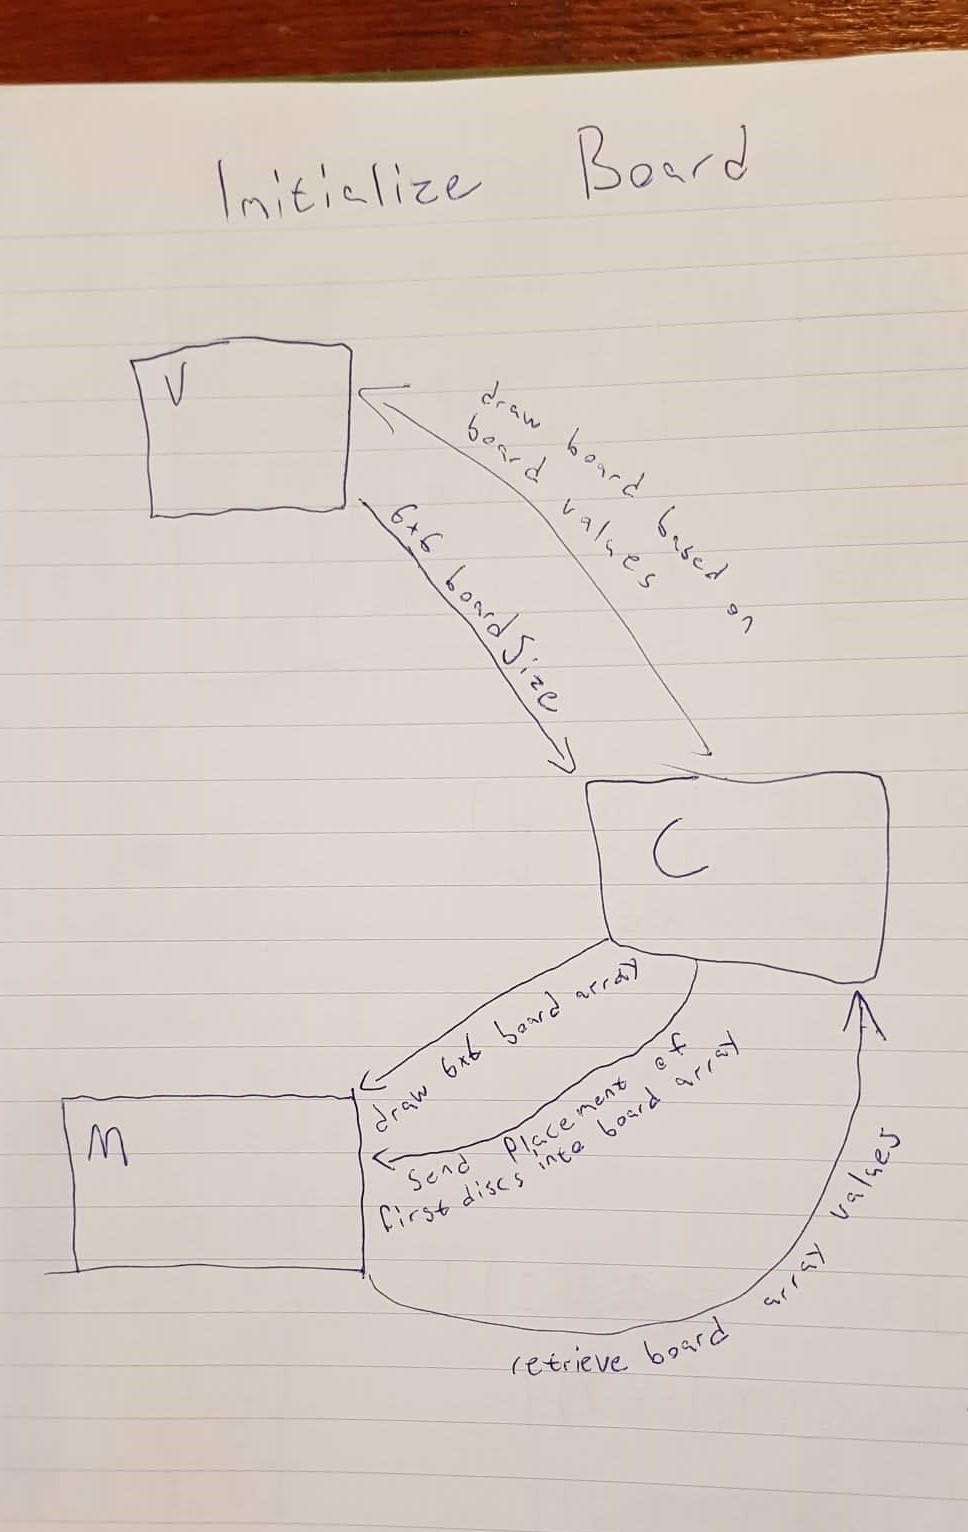 Initialize Board
V
draw board based on
board values
6x6 board Size
C
draw 6x6 board array
Send Placement of
first discs into board array
M
retrieve board array values